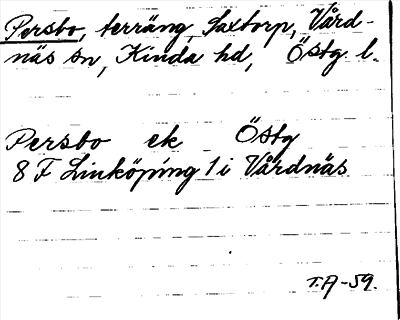 Persbo, terräng, Saxtorp, Vård-
näs sn, Kinda hd, Östg. l.
Persbo ek Östg
8 F Linköping 1 i Vårdnäs
T.A-59.